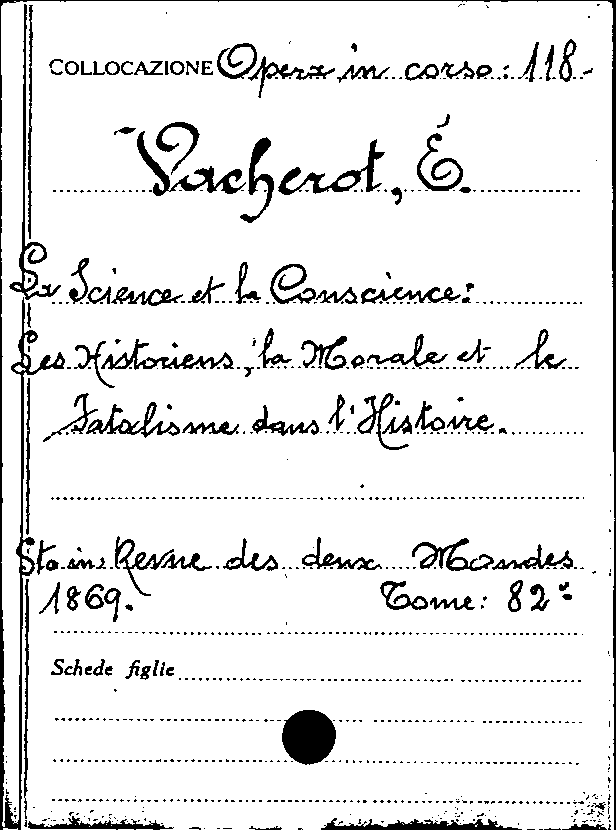 COLLOCAZIONE Opera in corso: 118-
Vacherot, É.
La Science et la Conscience:
Les Historiens, la Morale et le
Fatalisme dans l'Histoire.
Sta in: Revue des deux Mondes
1869. Tome: 82º
Schede figlie